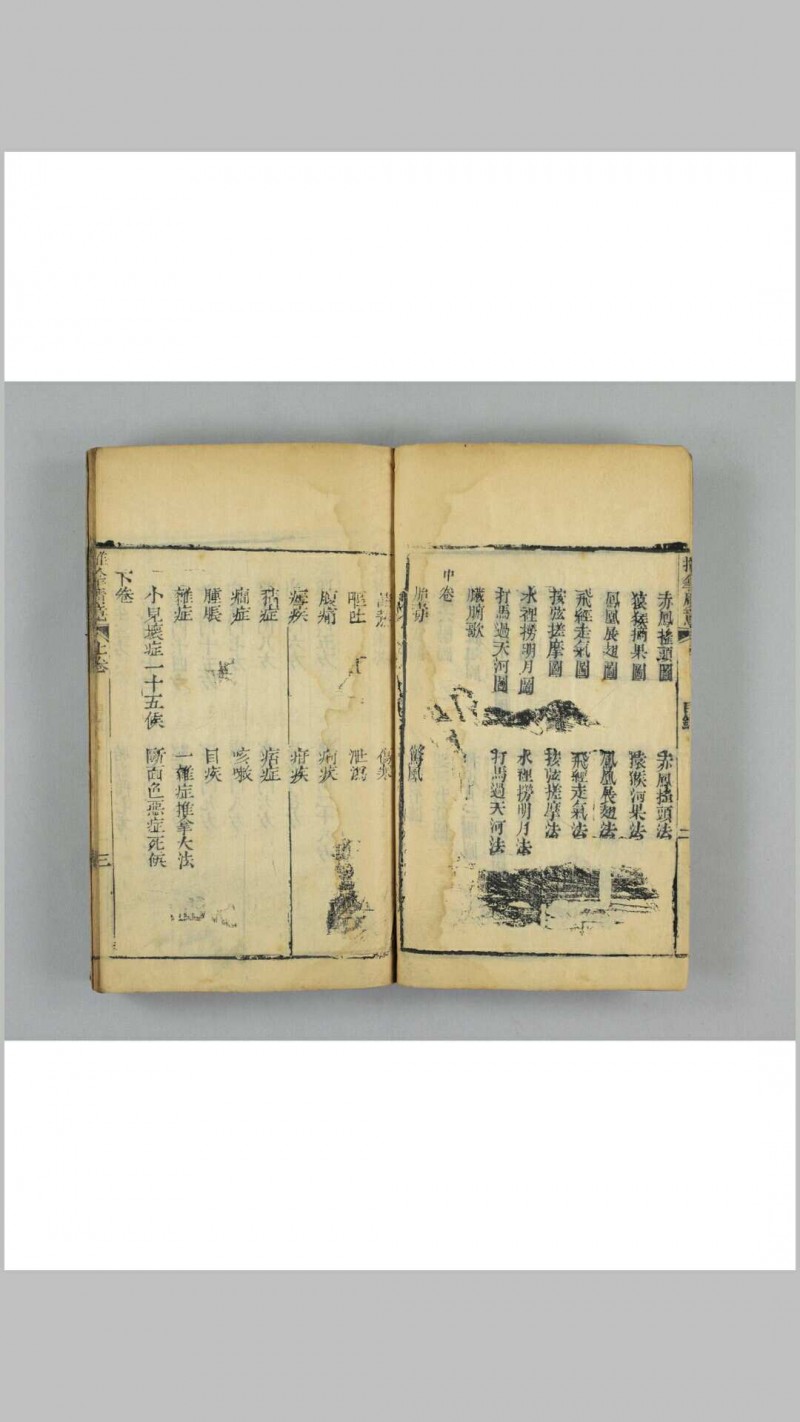 赤鳳搖頭圖　赤鳳搖頭法
猿猴摘果圖　猿猴摘果法
鳳凰展翅圖　鳳凰展翅法
飛經走氣圖　飛經走氣法
按弦搓摩圖　按弦搓摩法
水裡撈明月圖　水裡撈明月法
打馬過天河圖　打馬過天河法
臟腑歌
中卷
胎毒
嘔吐　泄瀉
腹痛　痢疾
瘧疾　疳疾
痞症
癇症　咳嗽
腫脹　目疾
雜症　一雜症推拿大法
小兒壞症一十五候　斷面色惡症死候
下卷
上卷
三